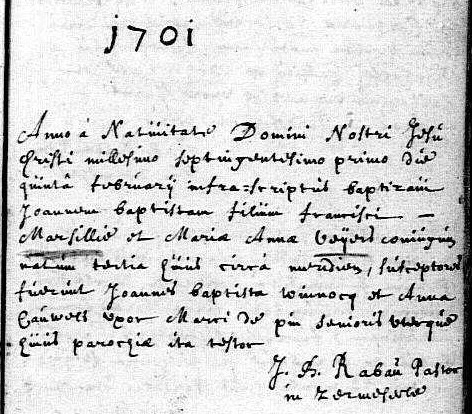 1701
Anno á Natiüitate Domini Nostri Jesü
Christi millesimo septingentesimo primo die
quintâ februarij infra=scriptus baptizaüi
Joannem baptistam filium francisci –
Marsillie et Mariæ Annæ Veÿers coniugum
natum tertia hüiüs circà meridiem, süsceptores
füerünt Joannes baptista winnocq et Anna
Caüwels üxor Marci de pin senioris üterque
hüiüs parochiæ ita testor
J. B. Rabaü Pastor
in Zermezeele